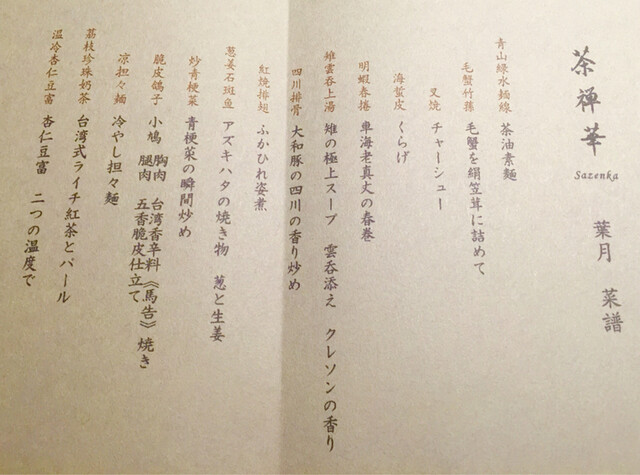 茶禅華
Sazenka
葉月 菜譜
青山緑水搔線 茶油素麺
毛蟹竹蓀 毛蟹を絹笠茸に詰めて
叉焼 チャーシュー
海蜇皮 くらげ
明蝦春捲 車海老真丈の春巻
雉雲吞上湯 雉の極上スープ 雲呑添え クレソンの香り
四川排骨 大和豚の四川の香り炒め
紅焼排翅 ふかひれ姿煮
葱姜石斑魚 アズキハタの焼き物 葱と生姜
炒青梗菜 青梗菜の瞬間炒め
脆皮鴿子 小鳩 胸肉 台湾香辛料《馬告》焼き
腿肉 五香脆皮仕立て
凉担々麺 冷やし担々麺
茘枝珍珠奶茶 台湾式ライチ紅茶とパール
温冷杏仁豆富 杏仁豆富 二つの温度で